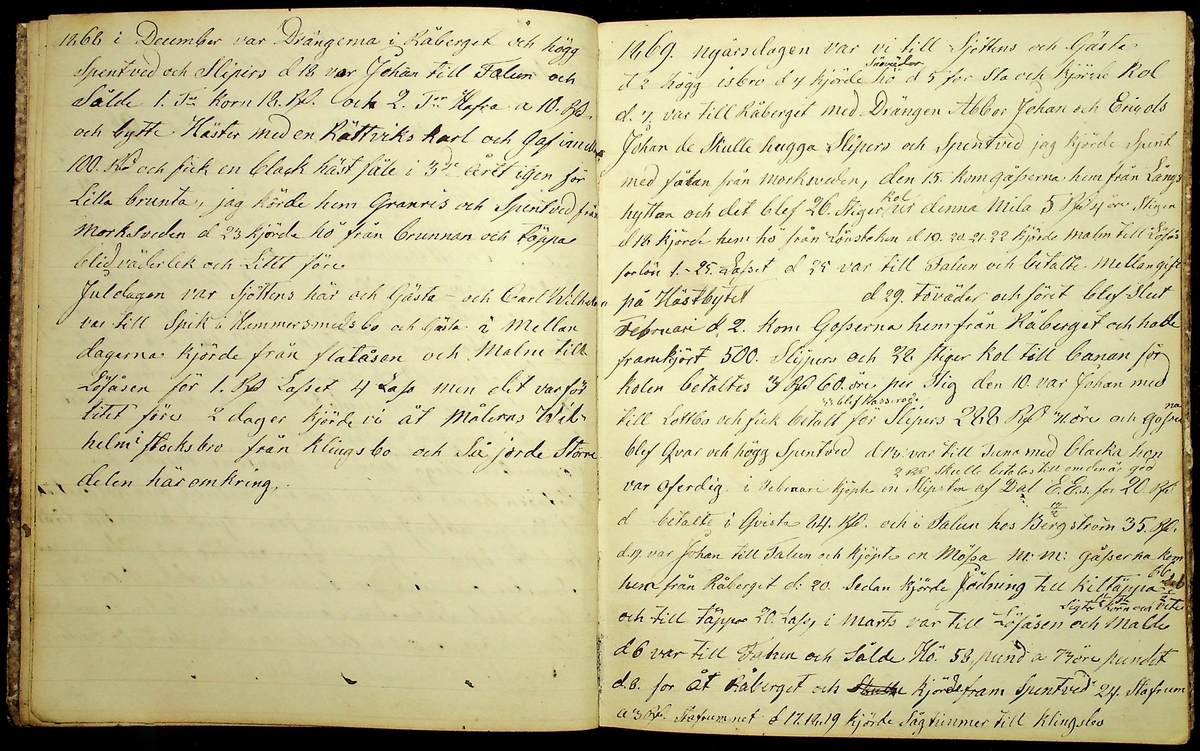 1868 i December var Drängerna i Råberget och högg
Spentved och Slipers d 18 var Johan till Falun och
Sålde 1. Tn Korn 18. Rd. och 2. Tn Hafra a 10. Rd.
och bytte Häster med en Rättviks karl och Gaf imellan
100. Rd och fick en black häst fåle i 3de året igen för
Lilla brunta, jag körde hem Granris och Spentved från
Morksveden d 23 kjörde hö från brunnan och täppa
blid väderlek och Litet före
Juldagen var Sjöttens här och Gästa - och Carl Wilhelm
var till Spik o Hammersmeds bo och Gästa i Mellan
dagerna kjörde från flatåsen och Malm till
Löjåsen för 1. Rd Lasset 4 Lass men det var för
litet före 2 dager kjörde vi åt Målerns Wil-
helms Stocksbro från Klingsbo och Så jorde Större
delen här omkring.
1869. nyårsdagen var vi till Sjöttens och Gästa
d 2 högg isbro d 4 kjörde hö d 5 for Sta och kjörde Kol
d. 7. var till Råberget med Drängen Abbor Johan och Erig ols
Johan de Skulle hugga Slipers och Spentved jag kjörde Spent
med fålan från morksveden, den 15. kom gåsserna hem från Lång
hyttan och det blef 26. Stiger kol ur denna Mila 5 Rd 4 öre Stigen
d 18 kjörde hem hö från d 19. 20. 21. 22 kjörde malm till Löjås
forlön 1.-25. Lasset d 25 var till Falun och betalte Mellangift
på Hästbytet d 29. töväder och föret blef Slut
Februari d 2. kom Gosserna hem från Råberget och hade
framkjört 500. Slipers och 32. Stiger Kol till banan för
kolen betaltes 3 Rd 60. öre per Stig den 10 var Johan med
till Lottbo och fick betalt för Slipers 288 Rd öre och Gossarna
blef Qvar och högg Spentved d 14. var till Tuna med blacka hon
var oferdig. i Februari kjöpte en Slipsten af Dal E.E.s. for 20. Rd
2 Rd. Skulle betalas till om den är god
d betalte i Qvista 44. Rd. och i Falun hos Bergström 35. Rd.
d.17. var Johan till Falun och kjöpte en Mössa m:m: gåsserna kom
hem från Råberget d. 20. Sedan kjörde Födning till Killtäppa
och till täppo 20. Lass, i Marts var till Löjåsen och Malde
d 6 var till Falun och Sålde Hö 58. pund a 75 öre pundet
d. 8. for åt Råberget och kjörde fram Spentved 24 Stafrum
a 3 Rd. Stafrummet d 17. 18. 19 kjörde Sågtimmer till Klingsbo